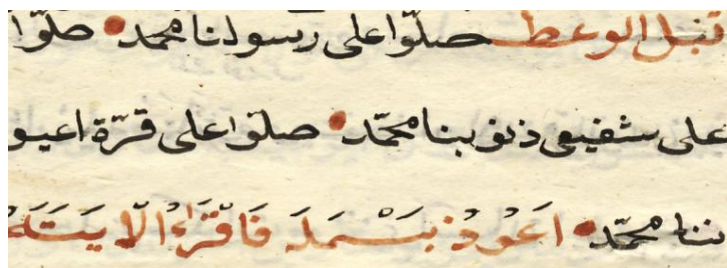 قبل الوعظ صلّوا على رسولنا محمد صلّوا
على شفيعى ذنوبنا محمّد صلّوا على قرّة اعيو
ننا محمّد اَعُوذُ بَسْمَلَه فَاقْرَاءُ الّا يَتَه